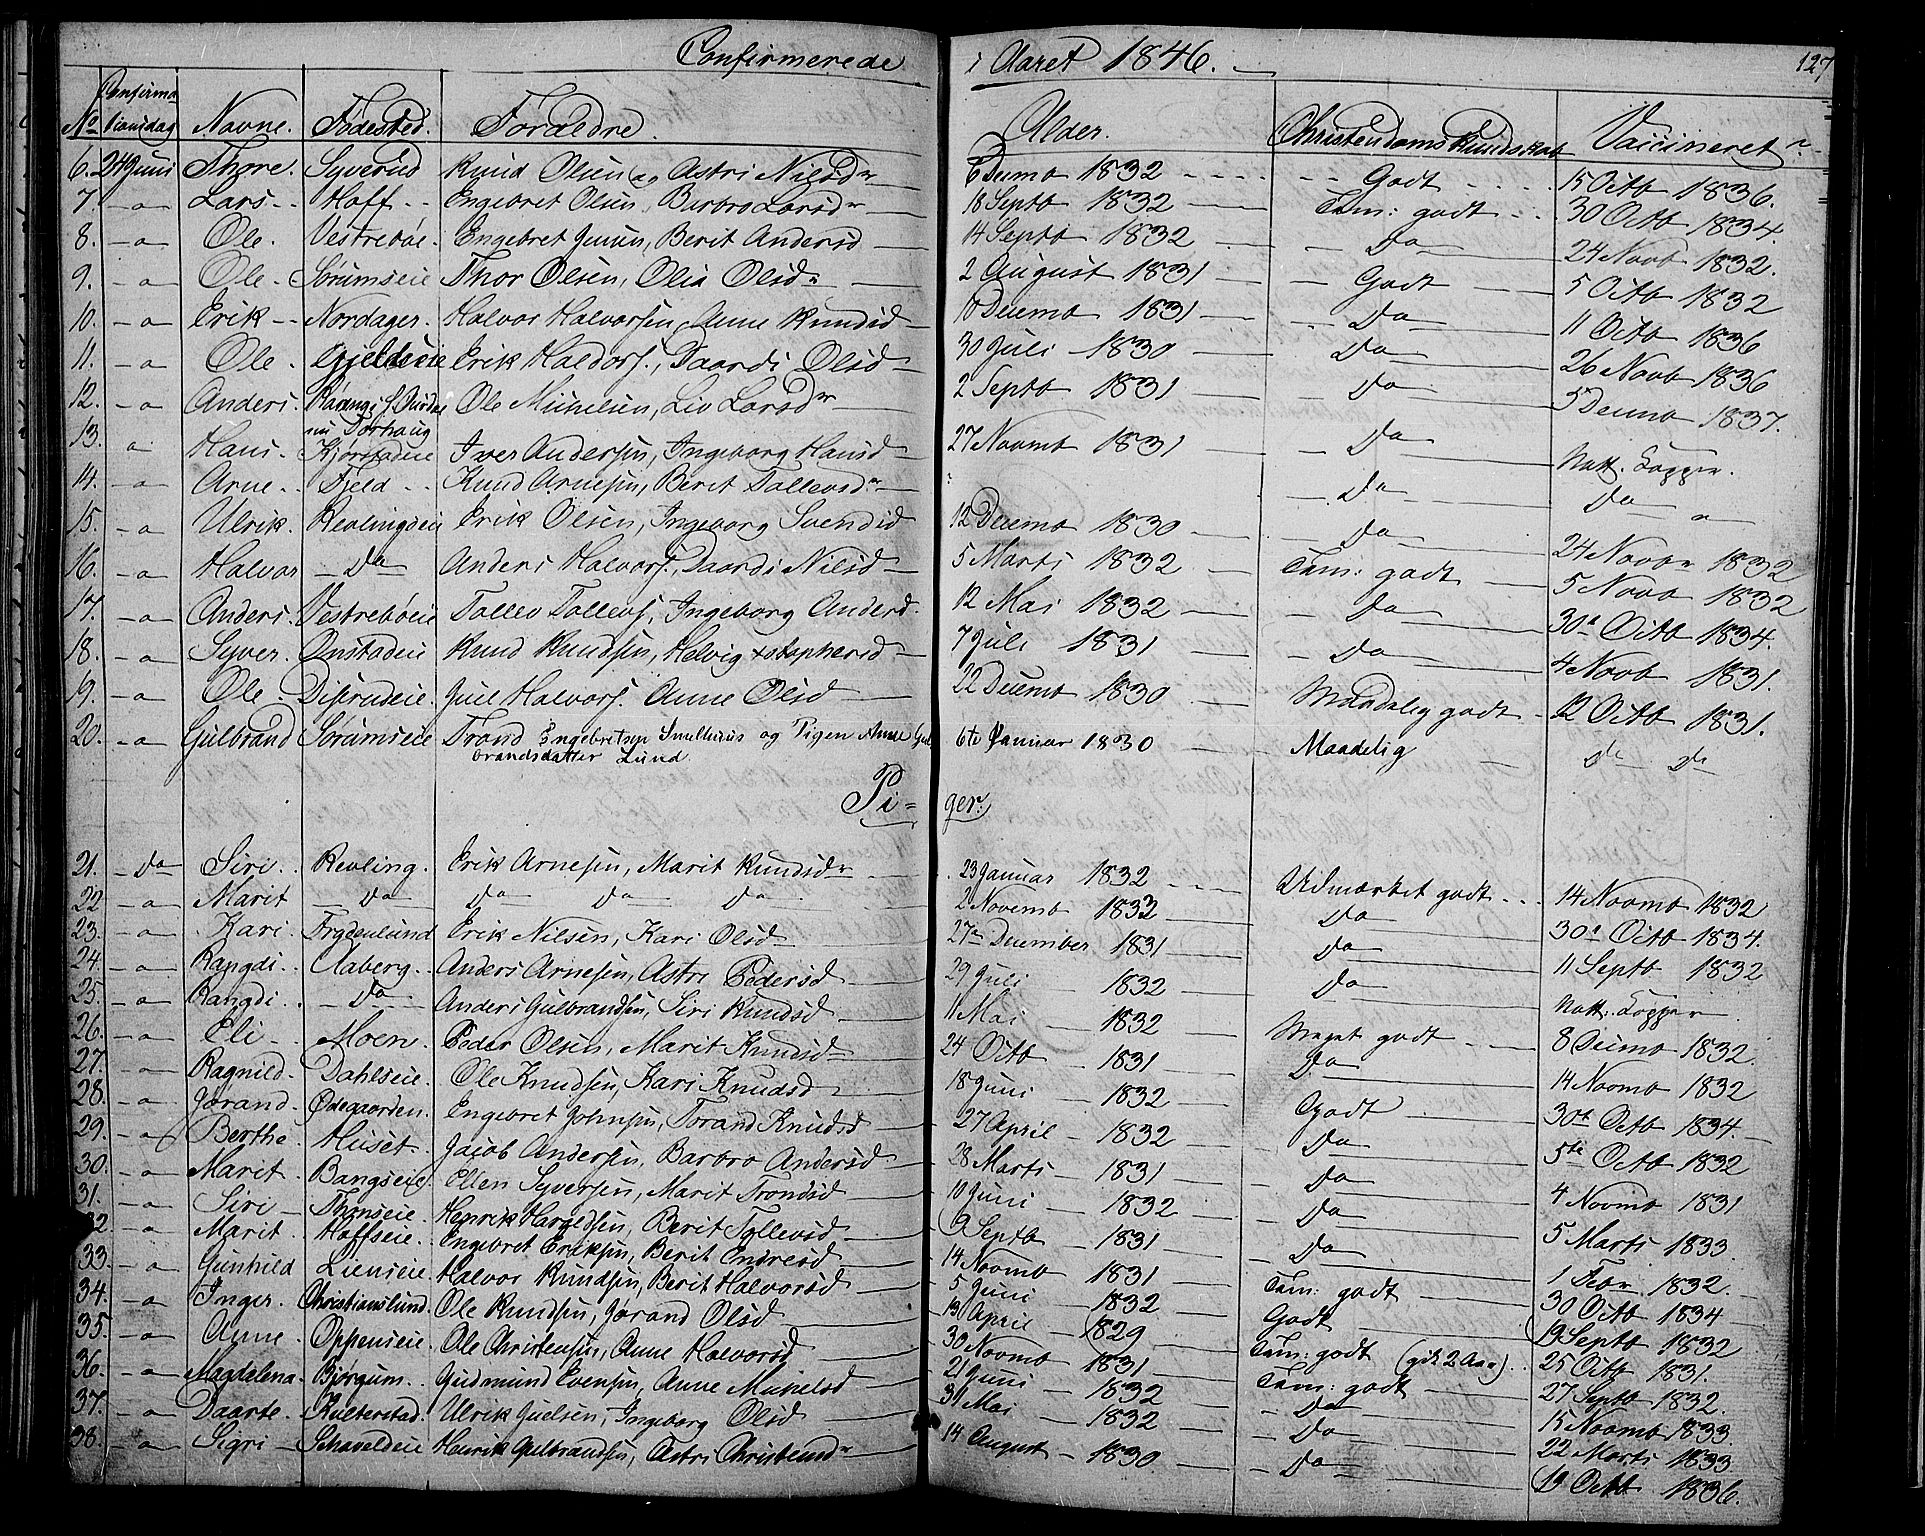 Confirmerede i Aaret 1846. 127
No Confirmationsdag Navne. Fødested. Forældre. Alder. Christendoms Kundskab Vaccineret
6. 24 Juni Thore. Syverud Knud Olsen og Astri Nilsdr 6 Decmb 1832 Godt 15 Octb 1836.
7. -a- Lars Hoff Engebret Olsen, Berbro Larsdr 18 Septb 1832 Tem: godt 30 Octb 1834.
8. -a- Ole. Vestrebøe. Engebret Juulsen, Berit Andersd 14 Septb 1832 Do 24 Novb 1832.
9. -a- Ole Sørumseie Thor Olsen, Olia Olsdr 2 August 1831 Godt 5 Octb 1832
10. -a- Erik Nordager. Halvor Halvorsen, Anne Knudsd 10 Decemb 1831 Do 11 Octb 1836
11. -a- Ole Gjeldseie Erik Haldors., Daardi Olsd 30 Juli 1830 Do 26 Novb 1836
12. -a- Anders. Ole Michelsen, Liv Larsdr 2 Septb 1831 Do 5 Decmb 1837.
13. a Hans. Kjørstadeie Iver Andersen, Ingeborg Hansd 27 Novmb 1831 Do Natt. Kopper.
14. -a- Arne Fjeld Knud Arnesen, Berit Tollevsdr Do Do a
15. -a- Ulrik. Revlingeie Erik Olsen, Ingeborg Svendsd 12 Decemb 1830 Do 24 Novbr 1832
16. -a- Halvor Do Anders Halvors., Daardi Nilsd 5 Marts 1832 Tem: godt 5 Novb 1832
17. -a- Anders. Vestrebøeie Tollev Tollevs., Ingeborg Andersd. 12 Mai 1832 Do 30t Octb 1834.
18. -a- Syver. Onstadeie Knud Knudsen, Helvig Xstophersd 7 Juli 1831 Do 4 Novb 1831.
19. -a- Ole Disrudeie. Juul Halvors. Anne Olsd 22 Decemb 1830 Maadelig godt 12 Octb 1831.
20. -a- Gulbrand Sørumseie Trond Engebretsen Smelhuus og Pigen Anne Gul 6te Januar 1830 Maadelig Do Do
brandsdatter Lund.
Piger.
21. Do Siri Revling. Erik Arnesen, Marit Knudsdr 23 Januar 1832 Udmærket godt 14 Novmb 1832
22 -a- Marit Do Do Do Do 2 Novemb 1833 Do 30t Octb 1834.
23. -a- Kari Frydenlund Erik Nilsen, Kari Olsd 27 December 1831 Do 11 Septb 1832
24. -a- Rangdi Aaberg Anders Arnesen, Astri Pedersd 29 Juli 1832 Do Natt: Kopper
25. -a- Rangdi Do Anders Gulbrandsen, Siri Knudsd 11 Mai 1832 Meget godt 8 Decmb 1832
26. -a- Eli Moen Peder Olsen, Marit Knudsd 24 Octb 1831 Do 14 Novmb 1832
27. -a- Ragnild Dahlseie. Ole Knudsen, Kari Knudsd 18 Juni 1832 Godt 30t Octb 1834.
28. -a- Jørand Ødegaarden. Engebret Johnsen, Torand Knudsd 27 April 1832 Do 5te Octb 1832
29. -a- Berthe Huset. Jacob Andersen, Barbro Andersd 28 Marts 1831 Do 4 Novmb 1831
30. -a- Marit Bangseie Ellen Syversen, Marit Trondsd 10 Juni 1832 Do 5 Marts 1833
31. -a- Siri Thonseie. Henrik Haraldsen, Berit Tollevsd 9 Septb 1831 Do 1 Febr 1832.
32 -a- Marit. Hoffseie. Engebret Eriksen, Berit Endresd 14 Novmb 1831 Tem: godt 30 Octb 1834
33. -a- Gunhild Lienseie Halvor Knudsen, Berit Halvorsd 5 Juni 1832 Godt 19 Septb 1832
34. -a- Inger. Christianslund. Ole Knudsen, Jørand Olsd 13 April 1829 Tem: godt (gik 2 Aar) 25 Octb 1831.
35. -a- Anne Oppenseie. Ole Christensen, Anne Halvorsd 30 Novmb 1831 Tem: godt 27 Septb 1832.
36. -a- Magdalena Bjørgum Gudmund Evensen, Anne Michelsd 21 Juni 1832 Do 15 Novmb 1833
37. -a- Daarte. Kulterstad. Ulrik Juelsen, Ingeborg Olsd 31 Mai 1832 Do 22 Marts 1833
38. -a- Sigri Schaveldeie Henrik Gulbrandsen, Astri Christensdr 14 August 1830 Do 19 Octb 1836.